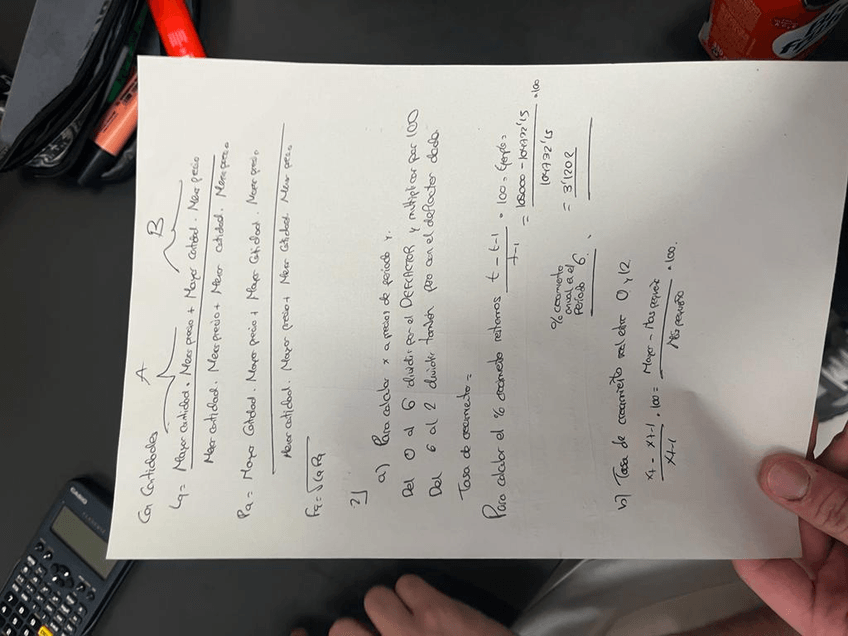 Con Cantidades
A
B
Lq = Mayor cantidad . Menor precio + Mayor Cantidad . Menor precio
Menor cantidad . Menor precio + Menor cantidad . Menor precio
Pq = Mayor Cantidad . Mayor precio + Mayor Cantidad . Mayor precio
Menor cantidad . Mayor precio + Menor Cantidad . Mayor precio
Fq = √Lq Pq
2)
a) Para calcular x a precios de periodo Y.
Del 0 al 6 dividir por el DEFLACTOR y multiplicar por 100
Del 6 al 2 dividir también pero con el deflactor dado.
Tasa de crecimiento =
Para calcular el % crecimiento restamos t - t-1 . 100 = Ejemplo =
t-1
= 108000 - 104732'15 . 100
104732'15
= 3'1202
% crecimiento
anual a el
periodo 6.
b) Tasa de crecimiento real entre 0 y 12
xt - xt-1 . 100 = Mayor - Mas pequeño . 100.
xt-1
Mas pequeño
CASIO